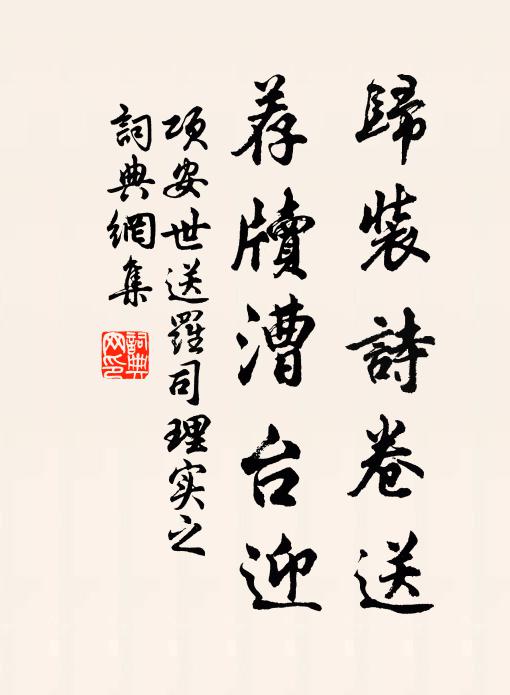 歸裝詩卷送
荐牘漕台迎
项安世送羅司理实之
詞典網集
詞典
网印